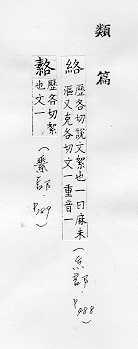 類篇
絡 歷各切說文絮也一曰麻未
漚又克各切文一重音一
(糸部,P.488)
䌴 歷各切絮
也文一